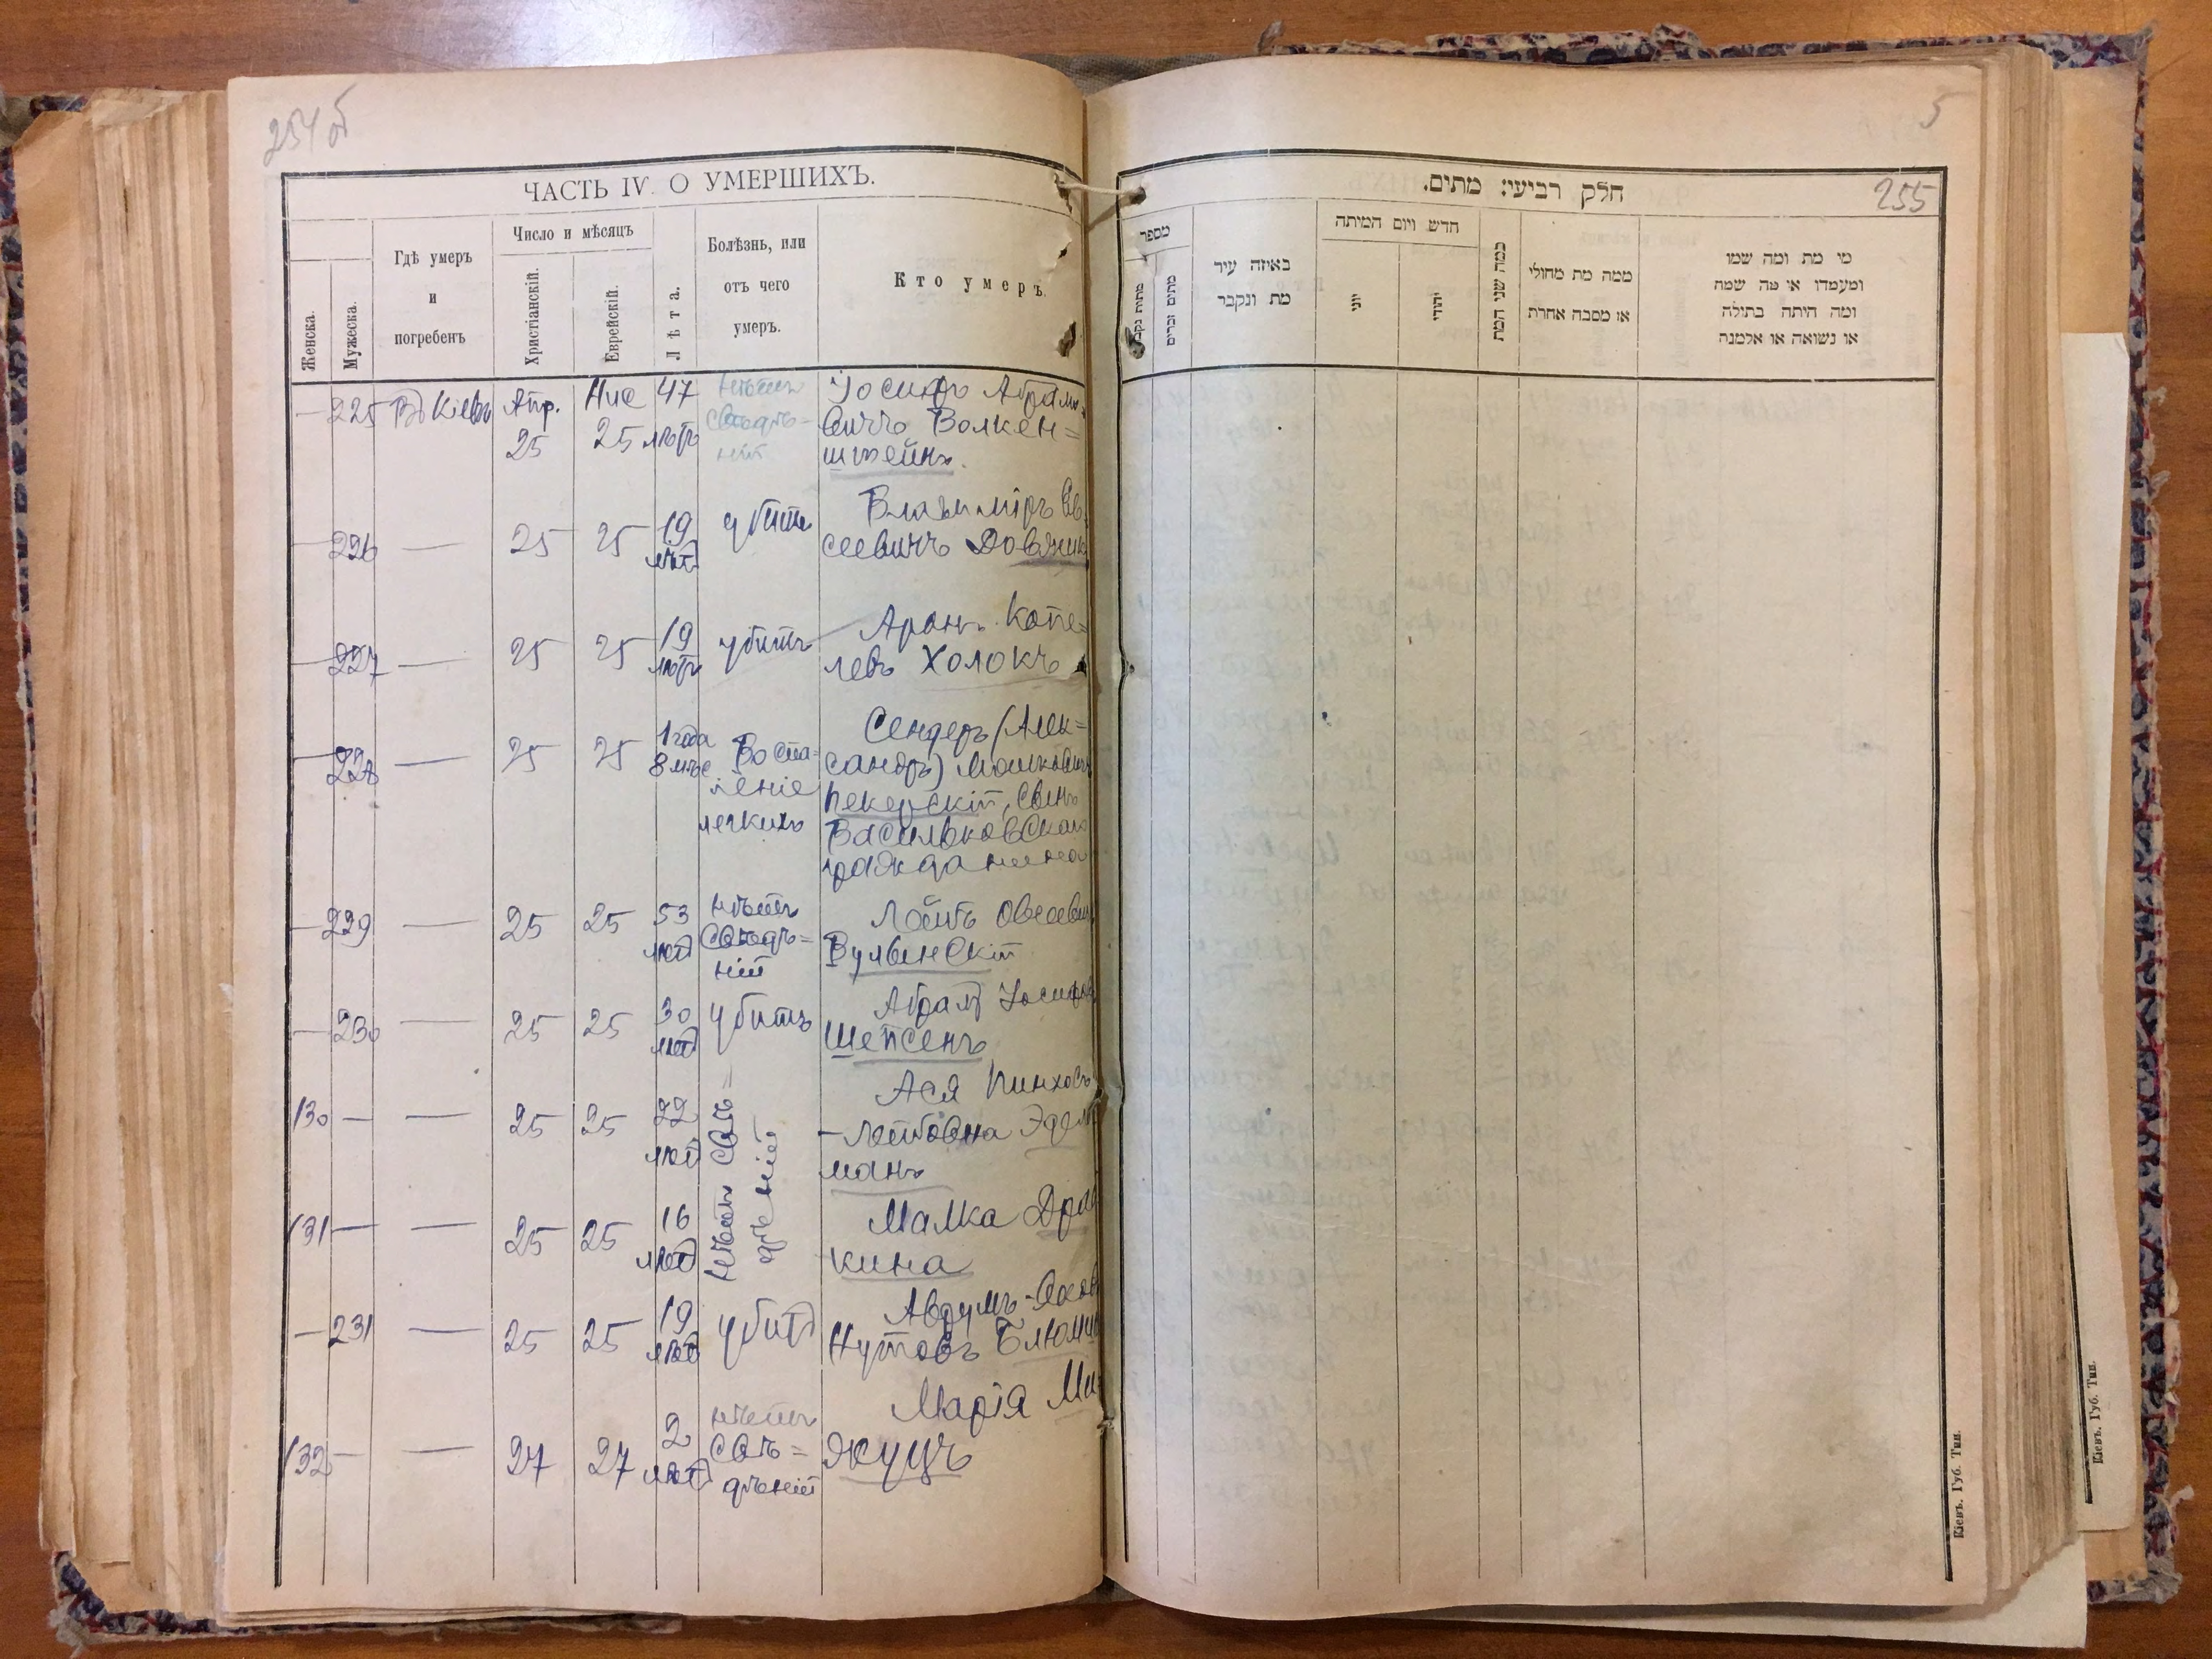 254 об
ЧАСТЬ IV. О УМЕРШИХЪ.
Женска.
Мужеска.
Гдѣ умеръ
и
погребенъ
Число и мѣсяцъ
Христіанскій.
Еврейскій.
Лѣта.
Болѣзнь, или
отъ чего
умеръ.
Кто умеръ.
— 225 Въ Кіевѣ Апр. 25 Нис 25 47 лѣтъ
нѣтъ
свѣдѣ=
ній
Іосифъ Абрамо-
вичъ Волкен=
штейнъ
— 226 — 25 25 19 лѣтъ убитъ
Владиміръ Ев
сеевичъ
— 227 — 25 25 19 лѣтъ убитъ
Аронъ Копе=
левъ Холокъ
— 228 — 25 25 1 года 8 мѣс
Воспа=
леніе
легкихъ
Сендеръ (Алек=
сандръ) Мошковичъ
Пекерскій, сынъ
Васильковскаго
гражданина
— 229 — 25 25 53 лѣт
нѣтъ
свѣдѣ=
ній
Лейбъ Овсеевич
Вульенскій
— 230 — 25 25 30 лѣт убитъ
Абрамъ Іосифов
Шепсенъ
130 — — 25 25 22 лѣт
нѣтъ свѣ=
дѣній
Ася Пинхосъ
-Лейбовна Эдель
манъ
131 — — 25 25 16 лѣт
Малка Драб
кина
— 231 — 25 25 19 лѣт убитъ
Нутовъ Блюмин
132 — — 27 27 2 лѣт
нѣтъ
свѣ=
дѣній
Марія Ми-
жуцъ
5
255
חלק רביעי: מתים.
מספר
מתות נקבות
מתים זכרים
באיזה עיר
מת ונקבר
חדש ויום המיתה
יוני
יהודי
כמה שני המת
ממה מת מחולי
או מסבה אחרת
מי מת ומה שמו
ומעמדו או מה שמה
ומה היתה בתולה
או נשואה או אלמנה
Кіевъ. Губ. Тип.
Кіевъ. Губ. Тип.